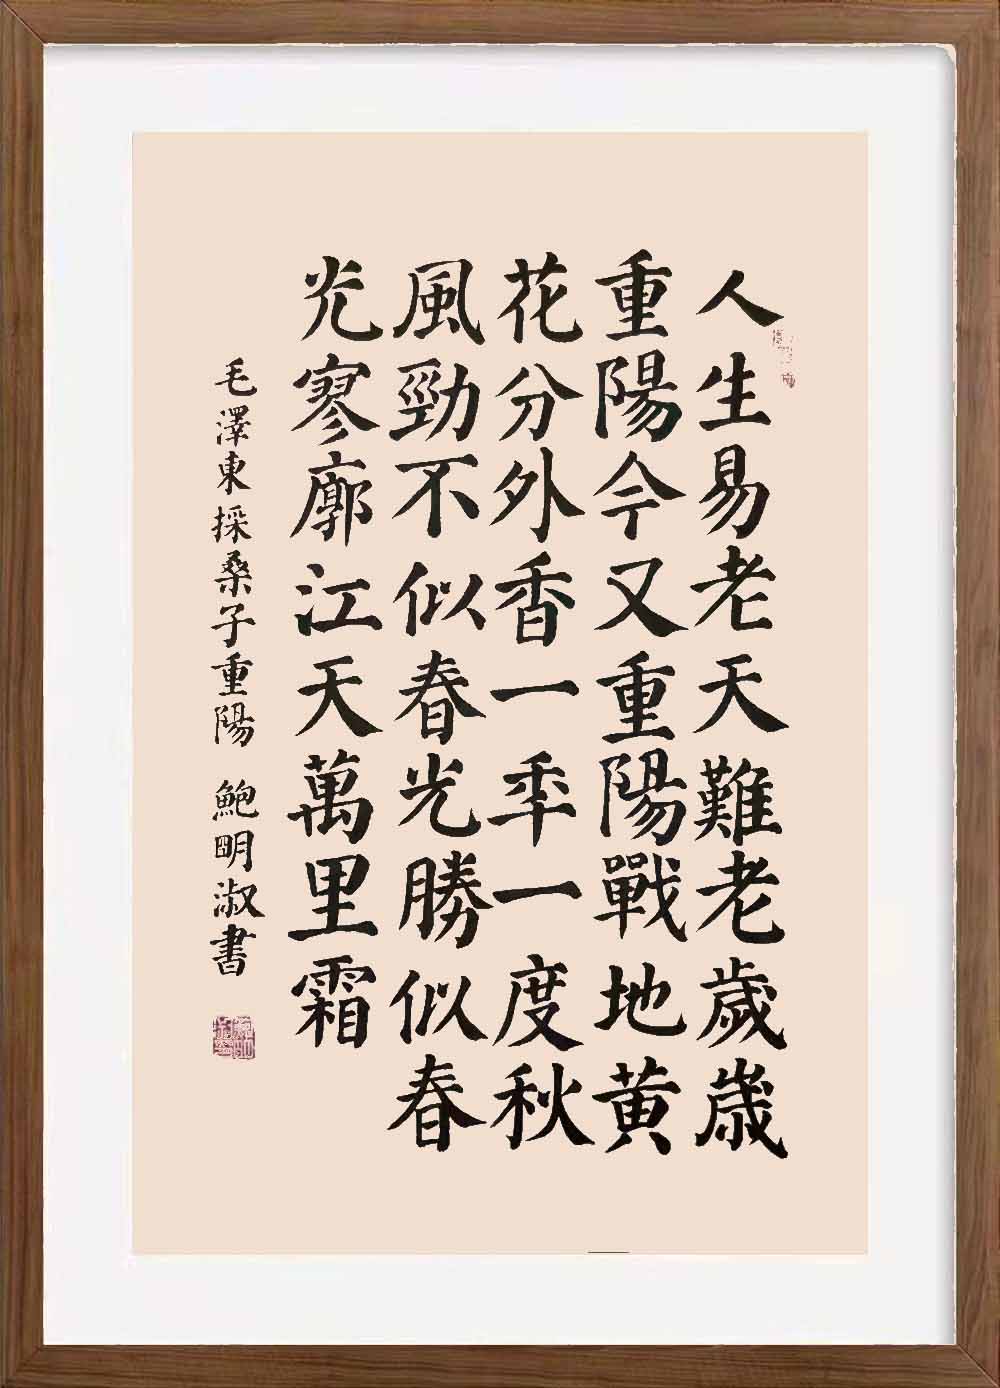 人生易老天難老歲歲
重陽今又重陽戰地黄
花分外香一年一度秋
風勁不似春光勝似春
光寥廓江天萬里霜
毛澤東採桑子重陽 鮑明淑書